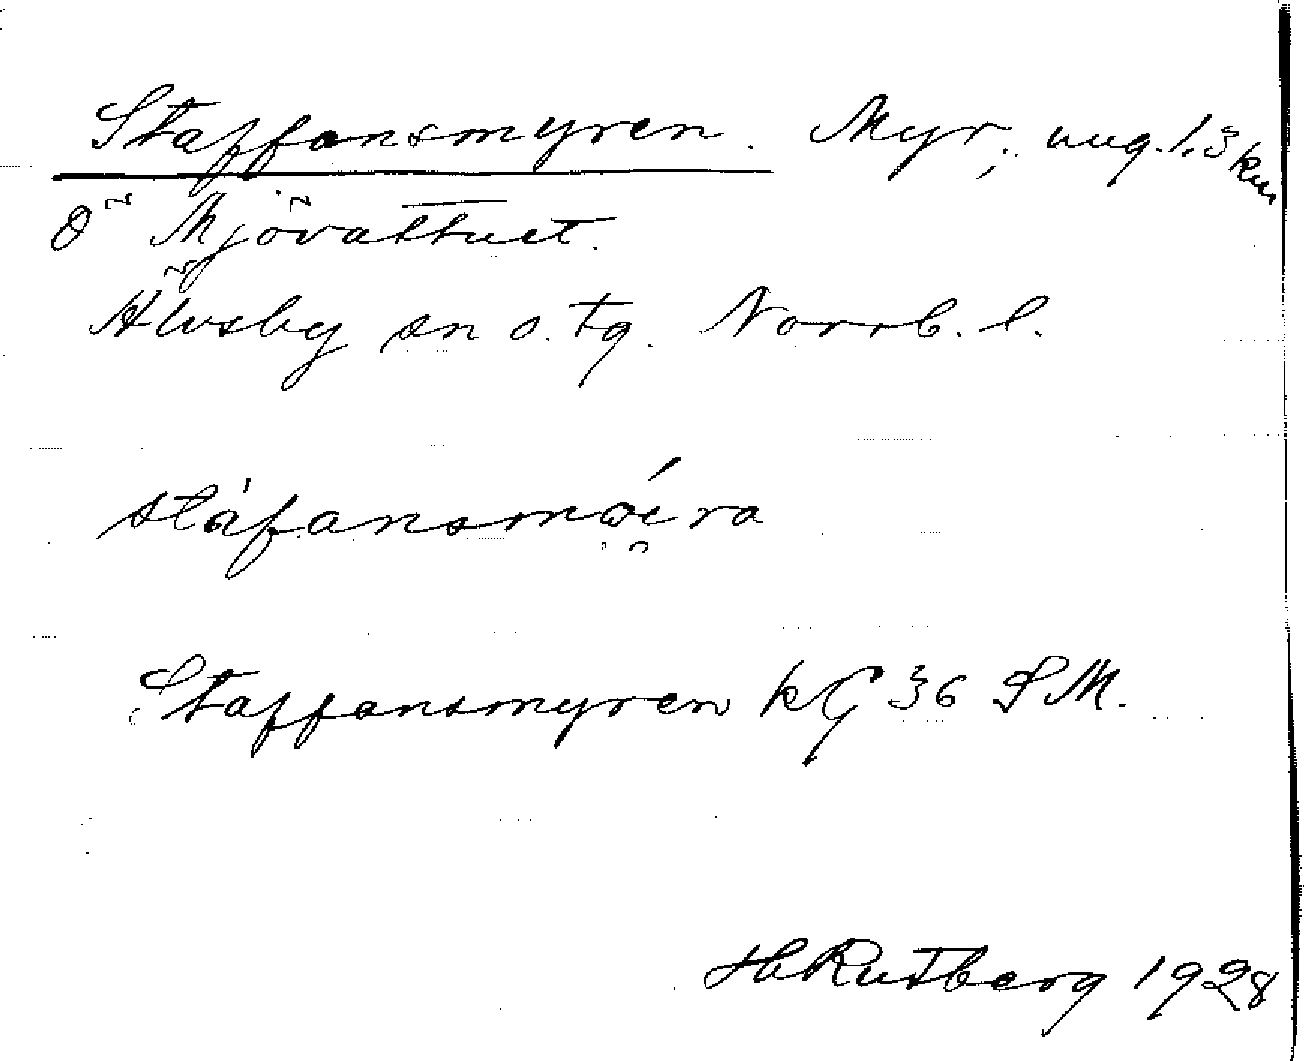 Staffansmyren. Myr, ung. 1,3 km
Ö Mjövattnet.
Älvsby sn o. tg. Norrb. l.
stáfansmöi̯ra
Staffansmyren kG 36 SM.
H Rutberg 1928